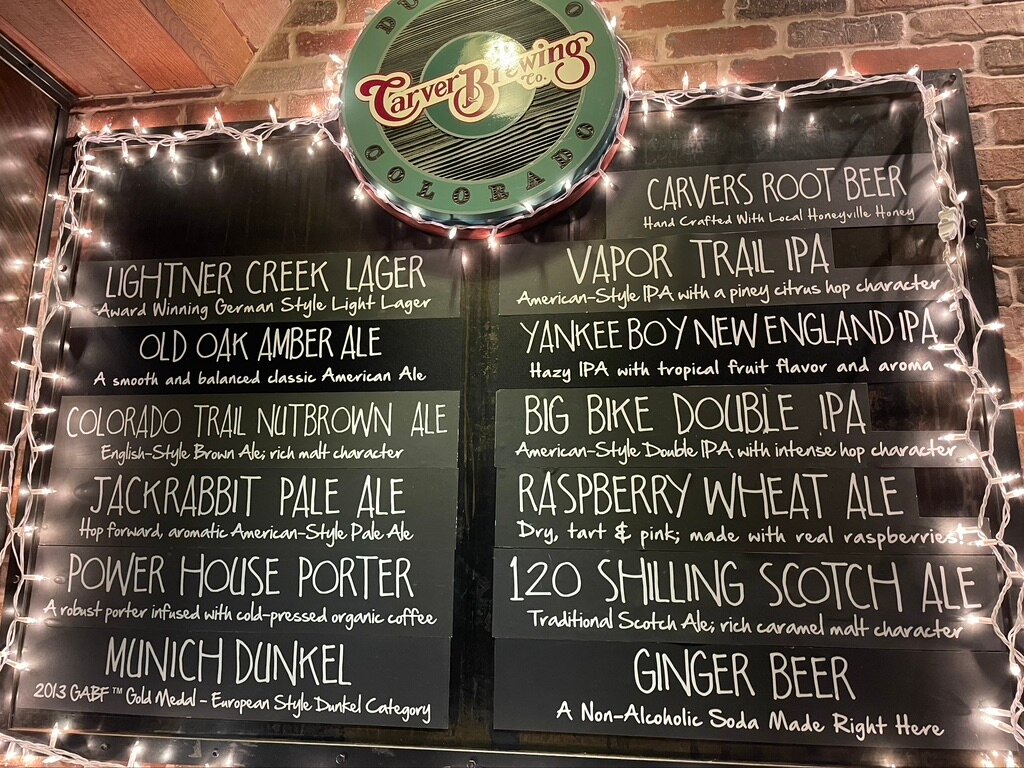 DU O
Carver Brewing
Co.
COLORADO
CARVERS ROOT BEER
Hand Crafted With Local Honeyville Honey
LIGHTNER CREEK LAGER
Award Winning German Style Light Lager
OLD OAK AMBER ALE
A smooth and balanced classic American Ale
COLORADO TRAIL NUTBROWN ALE
English-Style Brown Ale; rich malt character
JACKRABBIT PALE ALE
Hop forward, aromatic American-Style Pale Ale
POWER HOUSE PORTER
A robust porter infused with cold-pressed organic coffee
MUNICH DUNKEL
2013 GABF™ Gold Medal - European Style Dunkel Category
VAPOR TRAIL IPA
American-Style IPA with a piney citrus hop character
YANKEE BOY NEW ENGLAND IPA
Hazy IPA with tropical fruit flavor and aroma
BIG BIKE DOUBLE IPA
American-Style Double IPA with intense hop character
RASPBERRY WHEAT ALE
Dry, tart & pink; made with real raspberries!
120 SHILLING SCOTCH ALE
Traditional Scotch Ale; rich caramel malt character
GINGER BEER
A Non-Alcoholic Soda Made Right Here